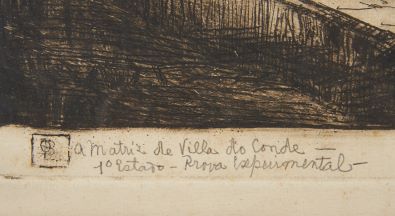 A Matriz de Villa do Conde —
1º Estado - Prova Experimental -